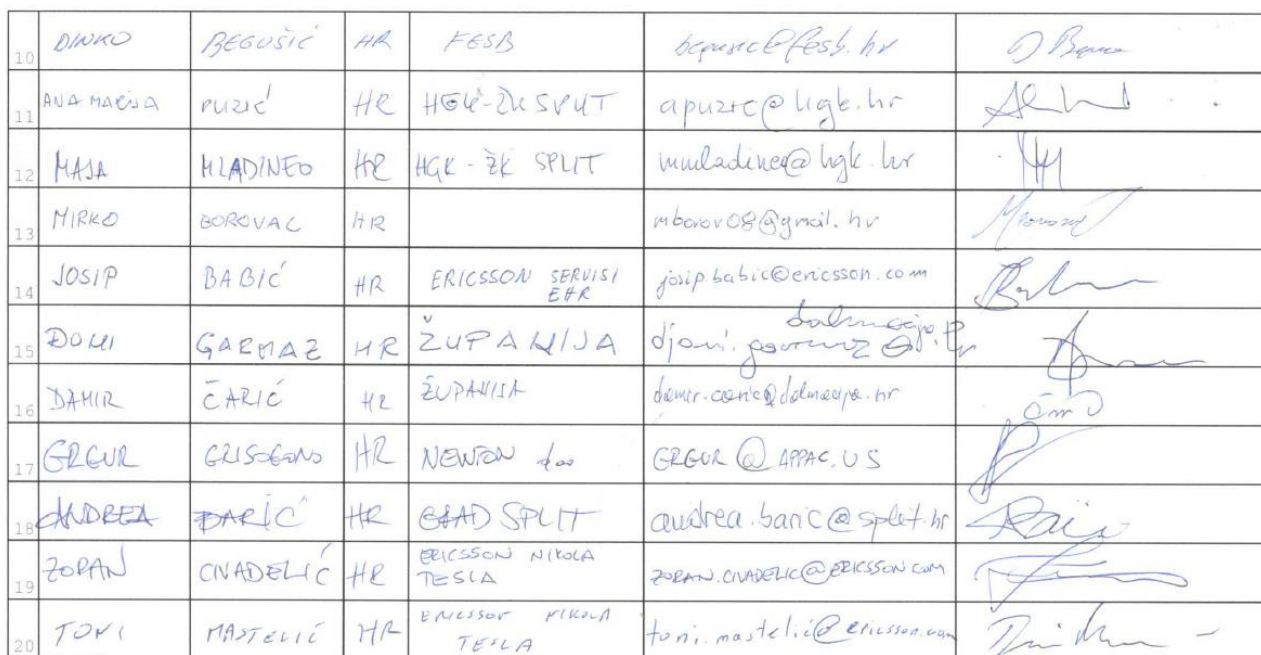 10 DINKO BEGUŠIĆ HR FESB begusic@fesb.hr
11 ANA MARIJA PUZIĆ HR HGK-ŽK SPLIT apuzic@hgk.hr
12 MAJA MLADINEO HR HGK - ŽK SPLIT mmladineo@hgk.hr
13 MIRKO BOROVAC HR mborov08@gmail.hr
14 JOSIP BABIĆ HR ERICSSON SERVISI EHR josip.babic@ericsson.com
15 ĐONI GARMAZ HR ŽUPANIJA djoni.garmaz@dalmacija.hr
16 DAMIR ČARIĆ HR ŽUPANIJA damir.caric@dalmacija.hr
17 GRGUR GRISOGONO HR NEWTON doo GRGUR@APPAC.US
18 ANDREA BARIĆ HR GRAD SPLIT andrea.baric@split.hr
19 ZORAN CIVADELIĆ HR ERICSSON NIKOLA TESLA ZORAN.CIVADELIC@ERICSSON.COM
20 TONI MASTELIĆ HR ERICSSON NIKOLA TESLA toni.mastelić@ericsson.com